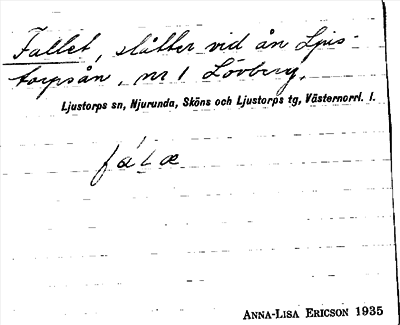 Fallet, slåtter vid ån Ljus-
torpsån, nr 1 Lövberg.
Ljustorps sn, Njurunda, Sköns och Ljustorps tg, Västernorrl. l.
fálæ
ANNA-LISA ERICSON 1935